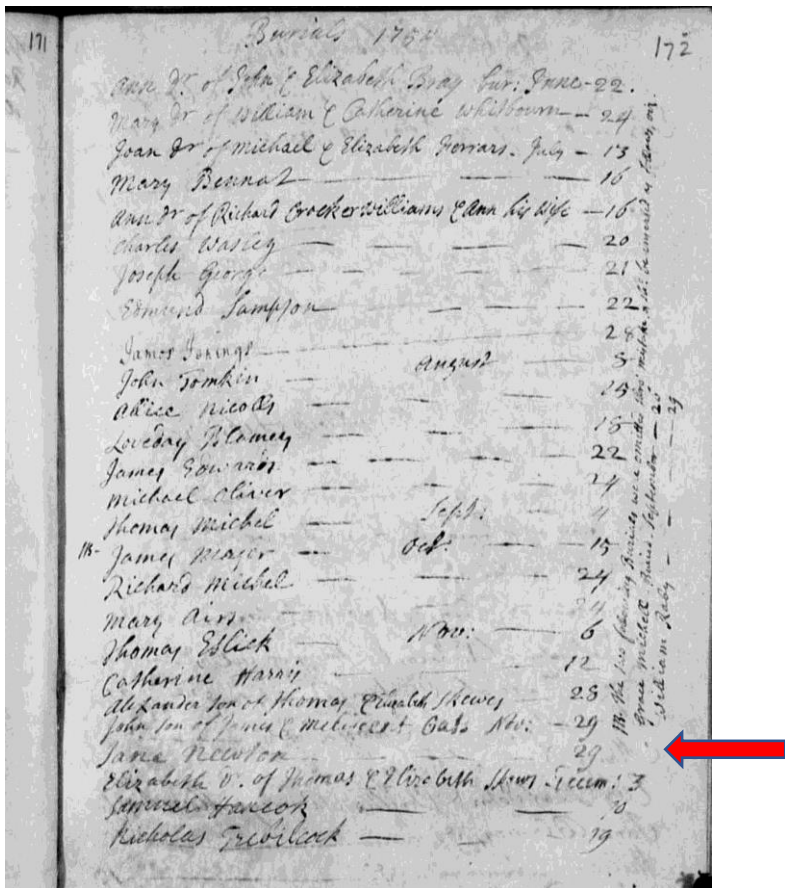 171
Burials 175
172
Ann Dr of John & Elizabeth Bray bur: June - 22.
Mary Dr of William & Catherine Whitbourn - 24
Joan Dr of Michael & Elizabeth Ferrars - July - 13
Mary Bennat 16
Ann Dr of Richard Crocker Williams & Ann his Wife - 16
Charles Wasley 20
Joseph George 21
Edmund Sampson 22
James Jnnings 28
John Tomkin August 5
Allice Nicolls 15
Loveday Blamey 18
James Edwards 22
Michael Oliver 24
Thomas Michel Sept: 4
James Major Oct: 15
Richard Michel 24
Mary 24
Thomas Eslick Nov: 6
Catherine Harris 12
Alexander Son of Thomas & Elizabeth Skewes 28
John Son of James & Metiscent Oats Nov: - 29
Jane Newton 29
Elizabeth D. of Thomas & Elizabeth Skews Decem: 3
Samuel Hancok
Nicholas Trevilcock 19
NB. The two following Burials were omitted thro mistake & to be inserted as follows, viz.
Grace Michell September - 28
William Raby - 29